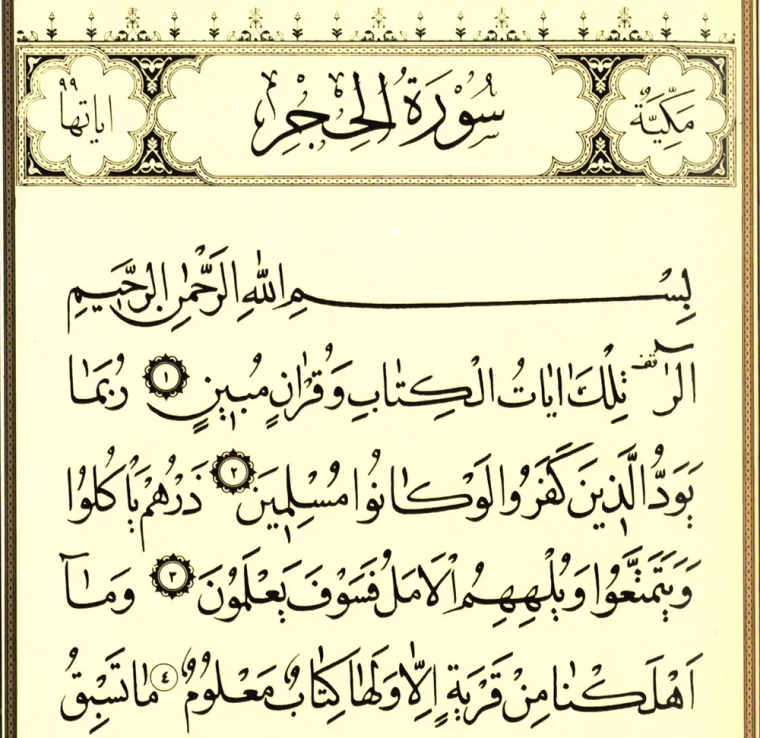 مَكِّيَّةٌ سُورَةُ الْحِجْرِ اياتها ٩٩
بِسْمِ اللّٰهِ الرَّحْمٰنِ الرَّحِيمِ
الٓرٰ قف تِلْكَ اٰيَاتُ الْكِتَابِ وَقُرْاٰنٍ مُبِينٍ ١ رُبَمَا
يَوَدُّ الَّذِينَ كَفَرُوا لَوْ كَانُوا مُسْلِمِينَ ٢ ذَرْهُمْ يَأْكُلُوا
وَيَتَمَتَّعُوا وَيُلْهِهِمُ الْاَمَلُ فَسَوْفَ يَعْلَمُونَ ٣ وَمَٓا
اَهْلَكْنَا مِنْ قَرْيَةٍ اِلَّا وَلَهَا كِتَابٌ مَعْلُومٌ ٤ مَا تَسْبِقُ